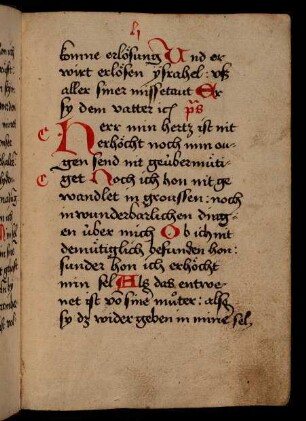 lj
komne erlösung Und er
wirt erlösen ysrahel : vß
aller siner missetaut Er
sy dem vatter ich ps
Herr min hertz ist nit
erhöcht noch min ou-
gen send nit geübermüti-
get Noch ich hon nit ge
wandlet in groussen : noch
in wunderbarlichen ding-
en über mich Ob ich mit
demütiglich befunden hon :
sunder hon ich erhöcht
min sel Als das entwe-
net ist vo sine můter : alß
sy dz wider geben in mine sel,